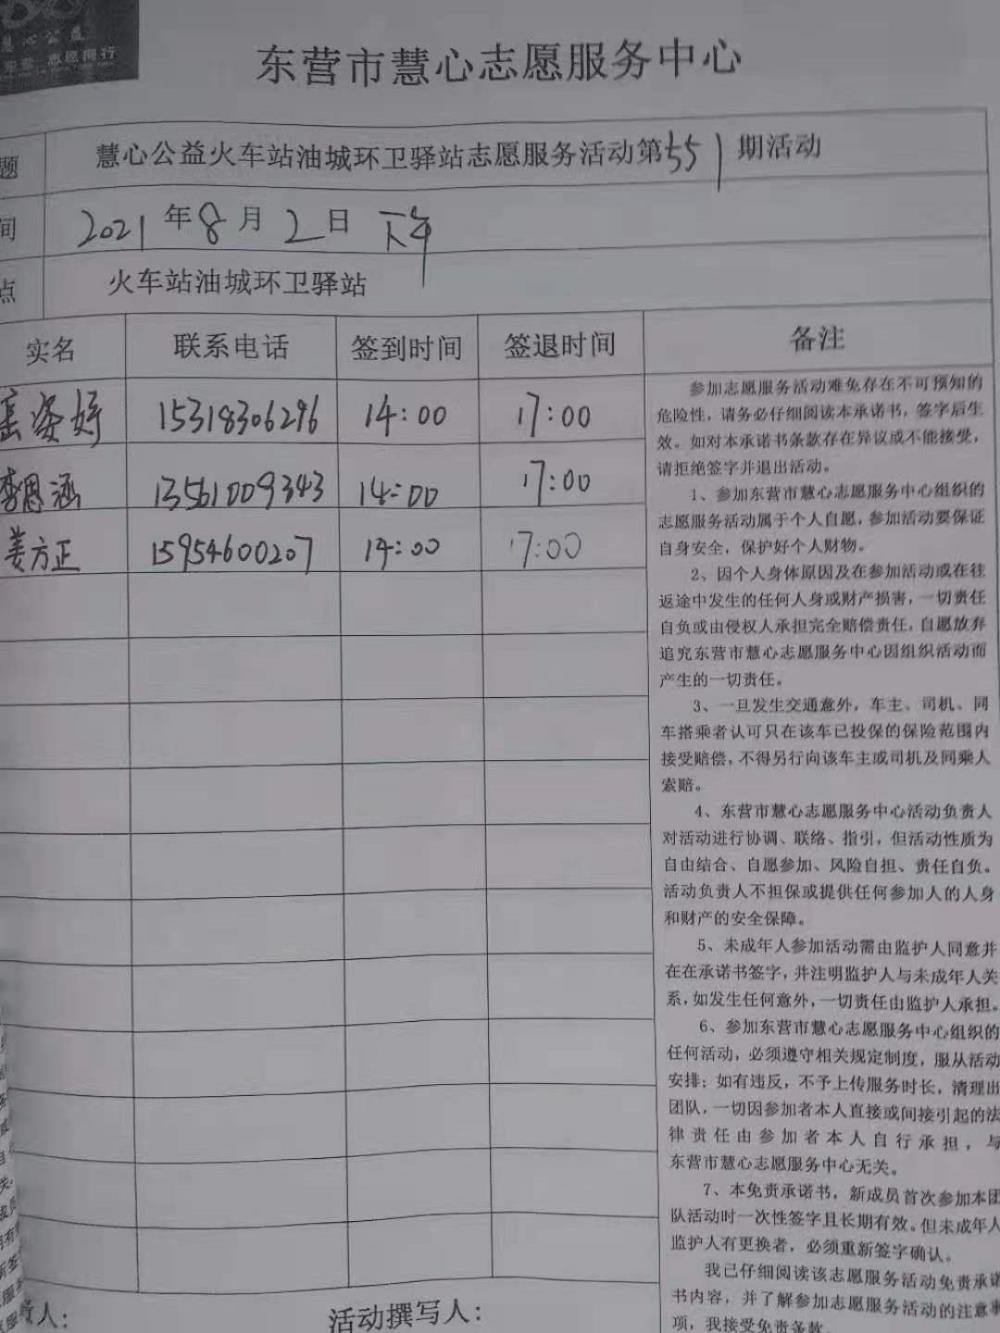 慧心公益
志愿同行
东营市慧心志愿服务中心
题 慧心公益火车站油城环卫驿站志愿服务活动第551期活动
间 2021年8月2日 下午
点 火车站油城环卫驿站
实名 联系电话 签到时间 签退时间 备注
15318306296 14:00 17:00
李思涵 13561009343 14:00 17:00
姜方正 15954600207 14:00 17:00
参加志愿服务活动难免存在不可预知的
危险性，请务必仔细阅读本承诺书，签字后生
效。如对本承诺书条款存在异议或不能接受，
请拒绝签字并退出活动。
1、参加东营市慧心志愿服务中心组织的
志愿服务活动属于个人自愿，参加活动要保证
自身安全，保护好个人财物。
2、因个人身体原因及在参加活动或在往
返途中发生的任何人身或财产损害，一切责任
自负或由侵权人承担完全赔偿责任，自愿放弃
追究东营市慧心志愿服务中心因组织活动而
产生的一切责任。
3、一旦发生交通意外，车主、司机、同
车搭乘者认可只在该车已投保的保险范围内
接受赔偿，不得另行向该车主或司机及同乘人
索赔。
4、东营市慧心志愿服务中心活动负责人
对活动进行协调、联络、指引，但活动性质为
自由结合、自愿参加、风险自担、责任自负。
活动负责人不担保或提供任何参加人的人身
和财产的安全保障。
5、未成年人参加活动需由监护人同意并
在在承诺书签字，并注明监护人与未成年人关
系，如发生任何意外，一切责任由监护人承担。
6、参加东营市慧心志愿服务中心组织的
任何活动，必须遵守相关规定制度，服从活动
安排；如有违反，不予上传服务时长，清理出
团队，一切因参加者本人直接或间接引起的法
律责任由参加者本人自行承担，与
东营市慧心志愿服务中心无关。
7、本免责承诺书，新成员首次参加本团
队活动时一次性签字且长期有效。但未成年人
监护人有更换者，必须重新签字确认。
我已仔细阅读该志愿服务活动免责承诺
书内容，并了解参加志愿服务活动的注意事
项，我接受免责条款。
人： 活动撰写人：